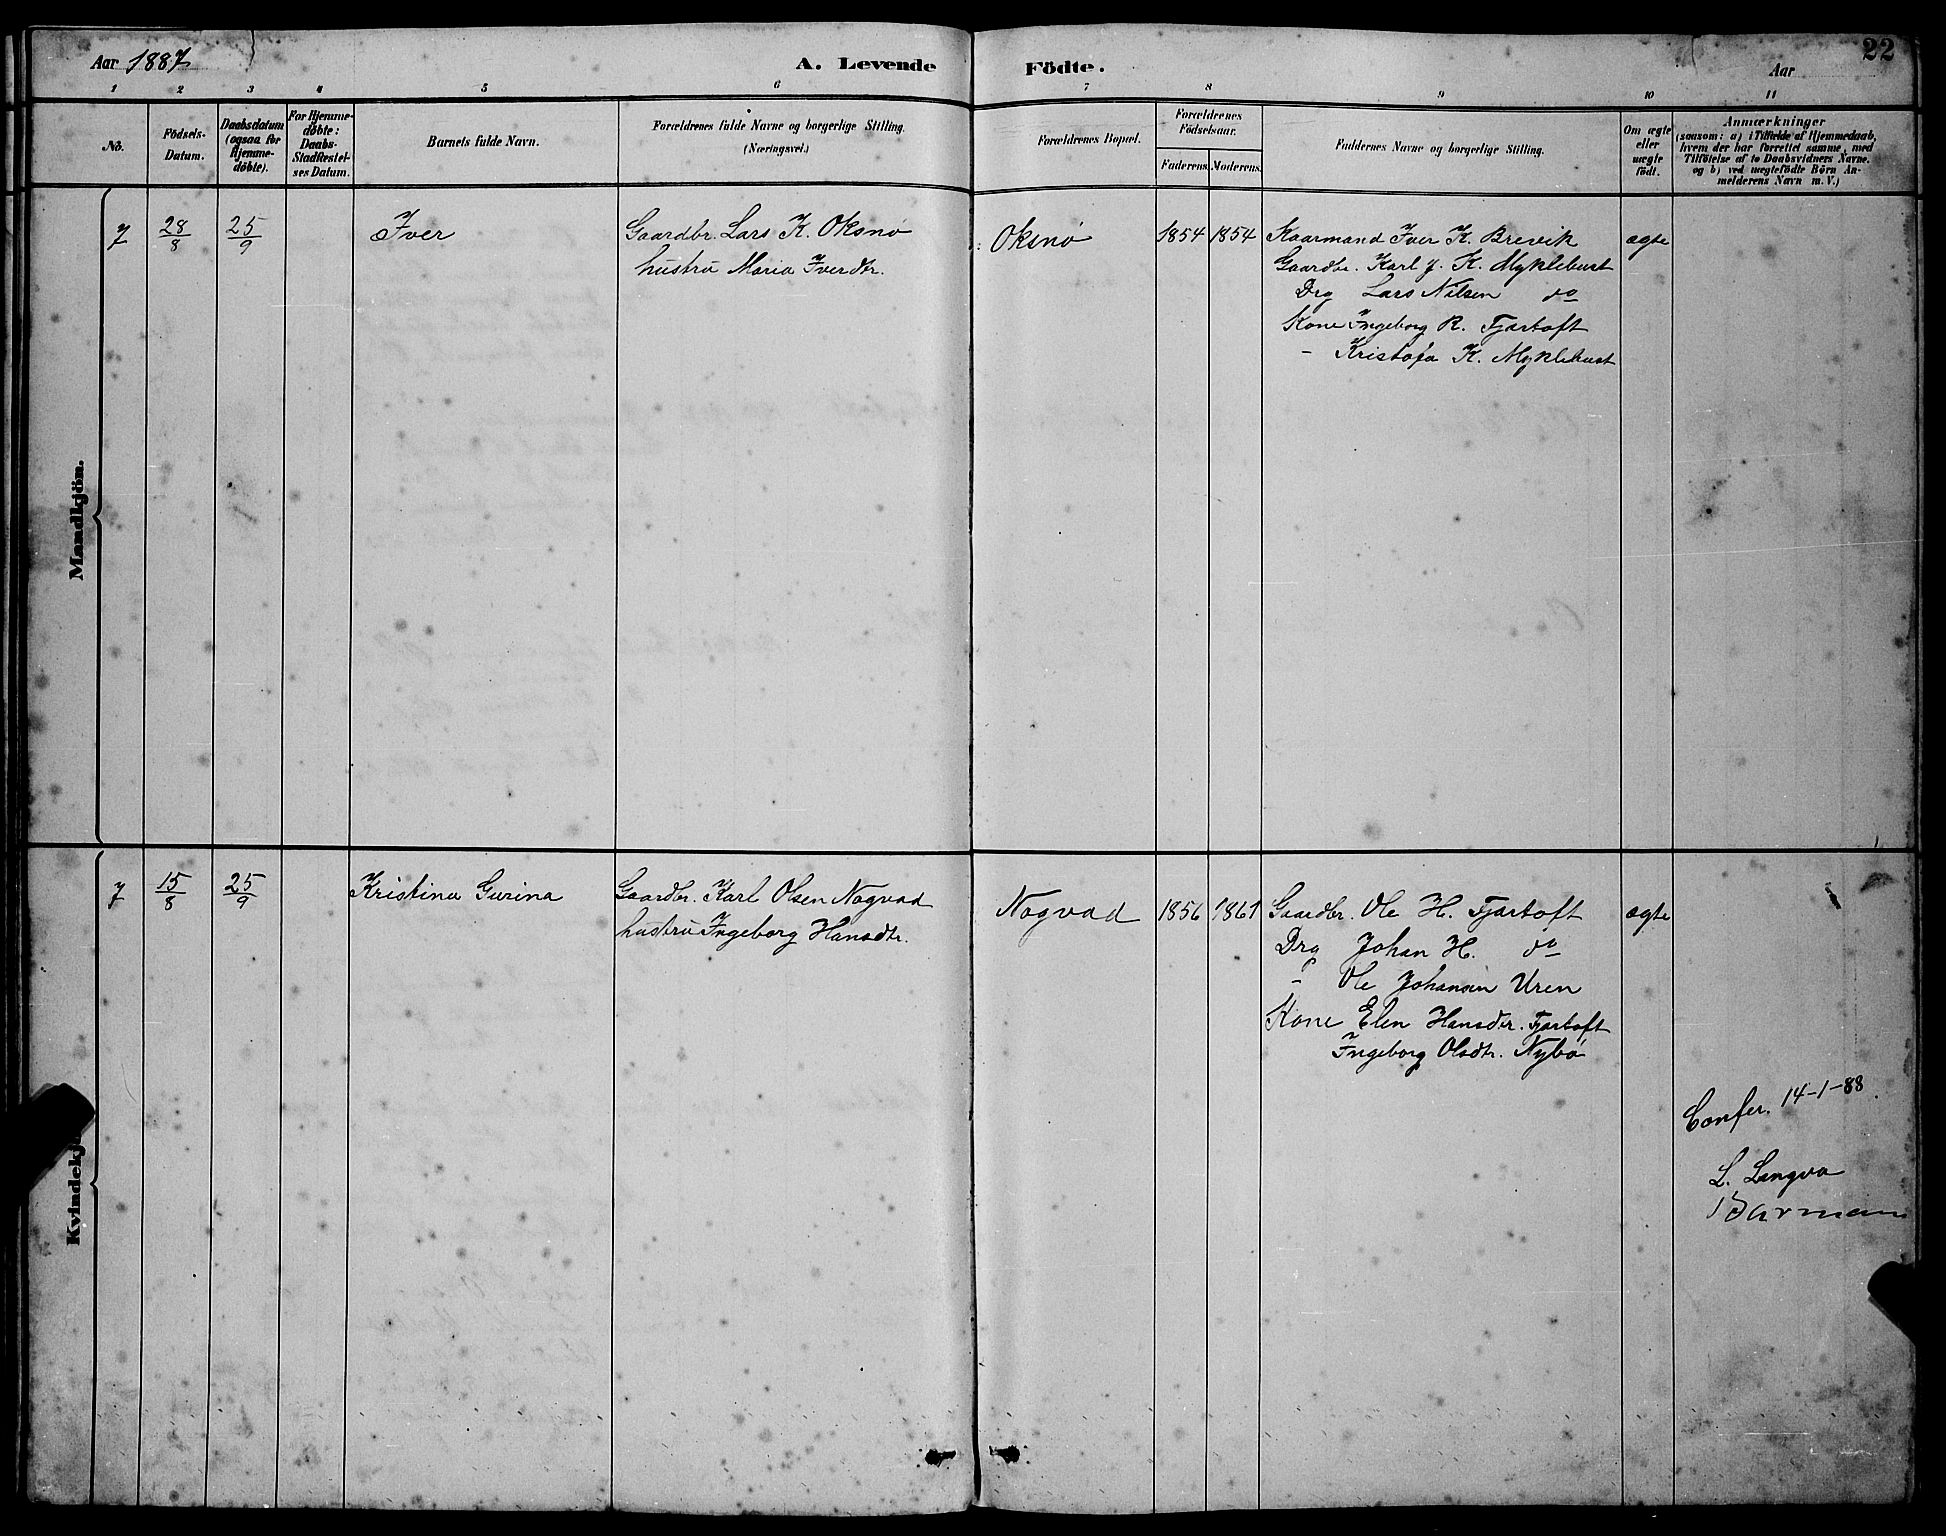 Aar 1887
A. Levende Födte.
Aar
22
1 2 3 4 5 6 7 8 9 10 11
No.
Födsels-
Datum.
Daabsdatum
(ogsaa for
Hjemme-
döbte).
For Hjemme-
döbte:
Daabs-
Stadfæstel-
ses Datum.
Barnets fulde Navn.
Forældrenes fulde Navne og borgerlige Stilling.
(Næringsvei.)
Forældrenes Bopæl.
Forældrenes
Födselsaar.
Faderens. Moderens.
Faddernes Navne og borgerlige Stilling.
Om ægte
eller
uægte
födt.
Anmærkninger
(saasom: a) i Tilfælde af Hjemmedaab,
hvem der har forrettet samme, med
Tilföielse af to Daabsvidners Navne.
og b) ved uægtefödte Börn An-
melderens Navn m. V.)
Mandkjön.
7 28/8 25/9 Iver
Gaardbr. Lars K. Oksnø
hustru Maria Iverdtr.
Oksnø 1854 1854
Kaarmand Iver K. Brevik
Gaardbr. Karl J. K. Myklebust
Drg Lars Nilsen do
Kone Ingeborg R. Fjærtoft
- Kristofa K. Myklebust
ægte
Kvindekj
7 15/8 25/9 Kristina Gurina
Gaardbr. Karl Olsen Nogvad
hustru Ingeborg Hansdtr.
Nogvad 1856 1861
Gaardbr. Ole H. Fjærtoft
Drg Johan H. do
- Ole Johansen Uren
Kone Elen Hansdtr. Fjærtoft
Ingeborg Olsdtr. Nybø
ægte
Confer. 14-1-88.
L. Longva